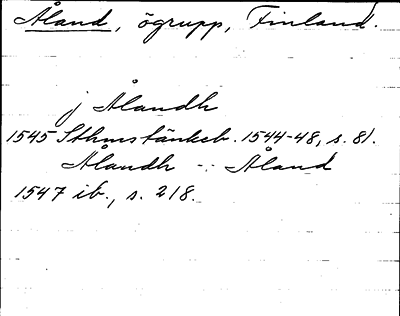 Åland, ögrupp, Finland.
j Ålandh
1545 Sthms tänkeb. 1544-48, s. 81.
Ålandh -:- Åland
1547 ib., s. 218.